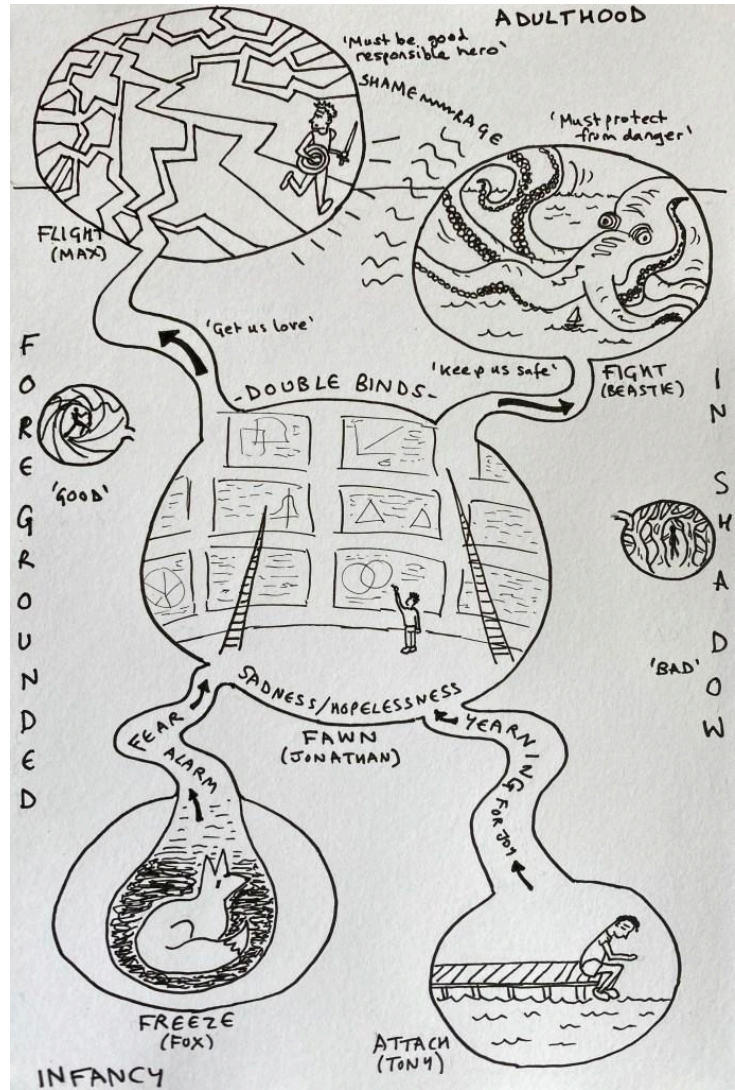 ADULTHOOD
'Must be good
responsible hero'
SHAME
RAGE
'Must protect
from danger'
FLIGHT
(MAX)
'Get us love'
'Keep us safe'
FIGHT
(BEASTIE)
-DOUBLE BINDS-
FOREGROUNDED
IN SHADOW
'GOOD'
'BAD'
SADNESS/HOPELESSNESS
FAWN
(JONATHAN)
FEAR
ALARM
YEARNING
FOR JOY
FREEZE
(FOX)
ATTACH
(TONY)
INFANCY